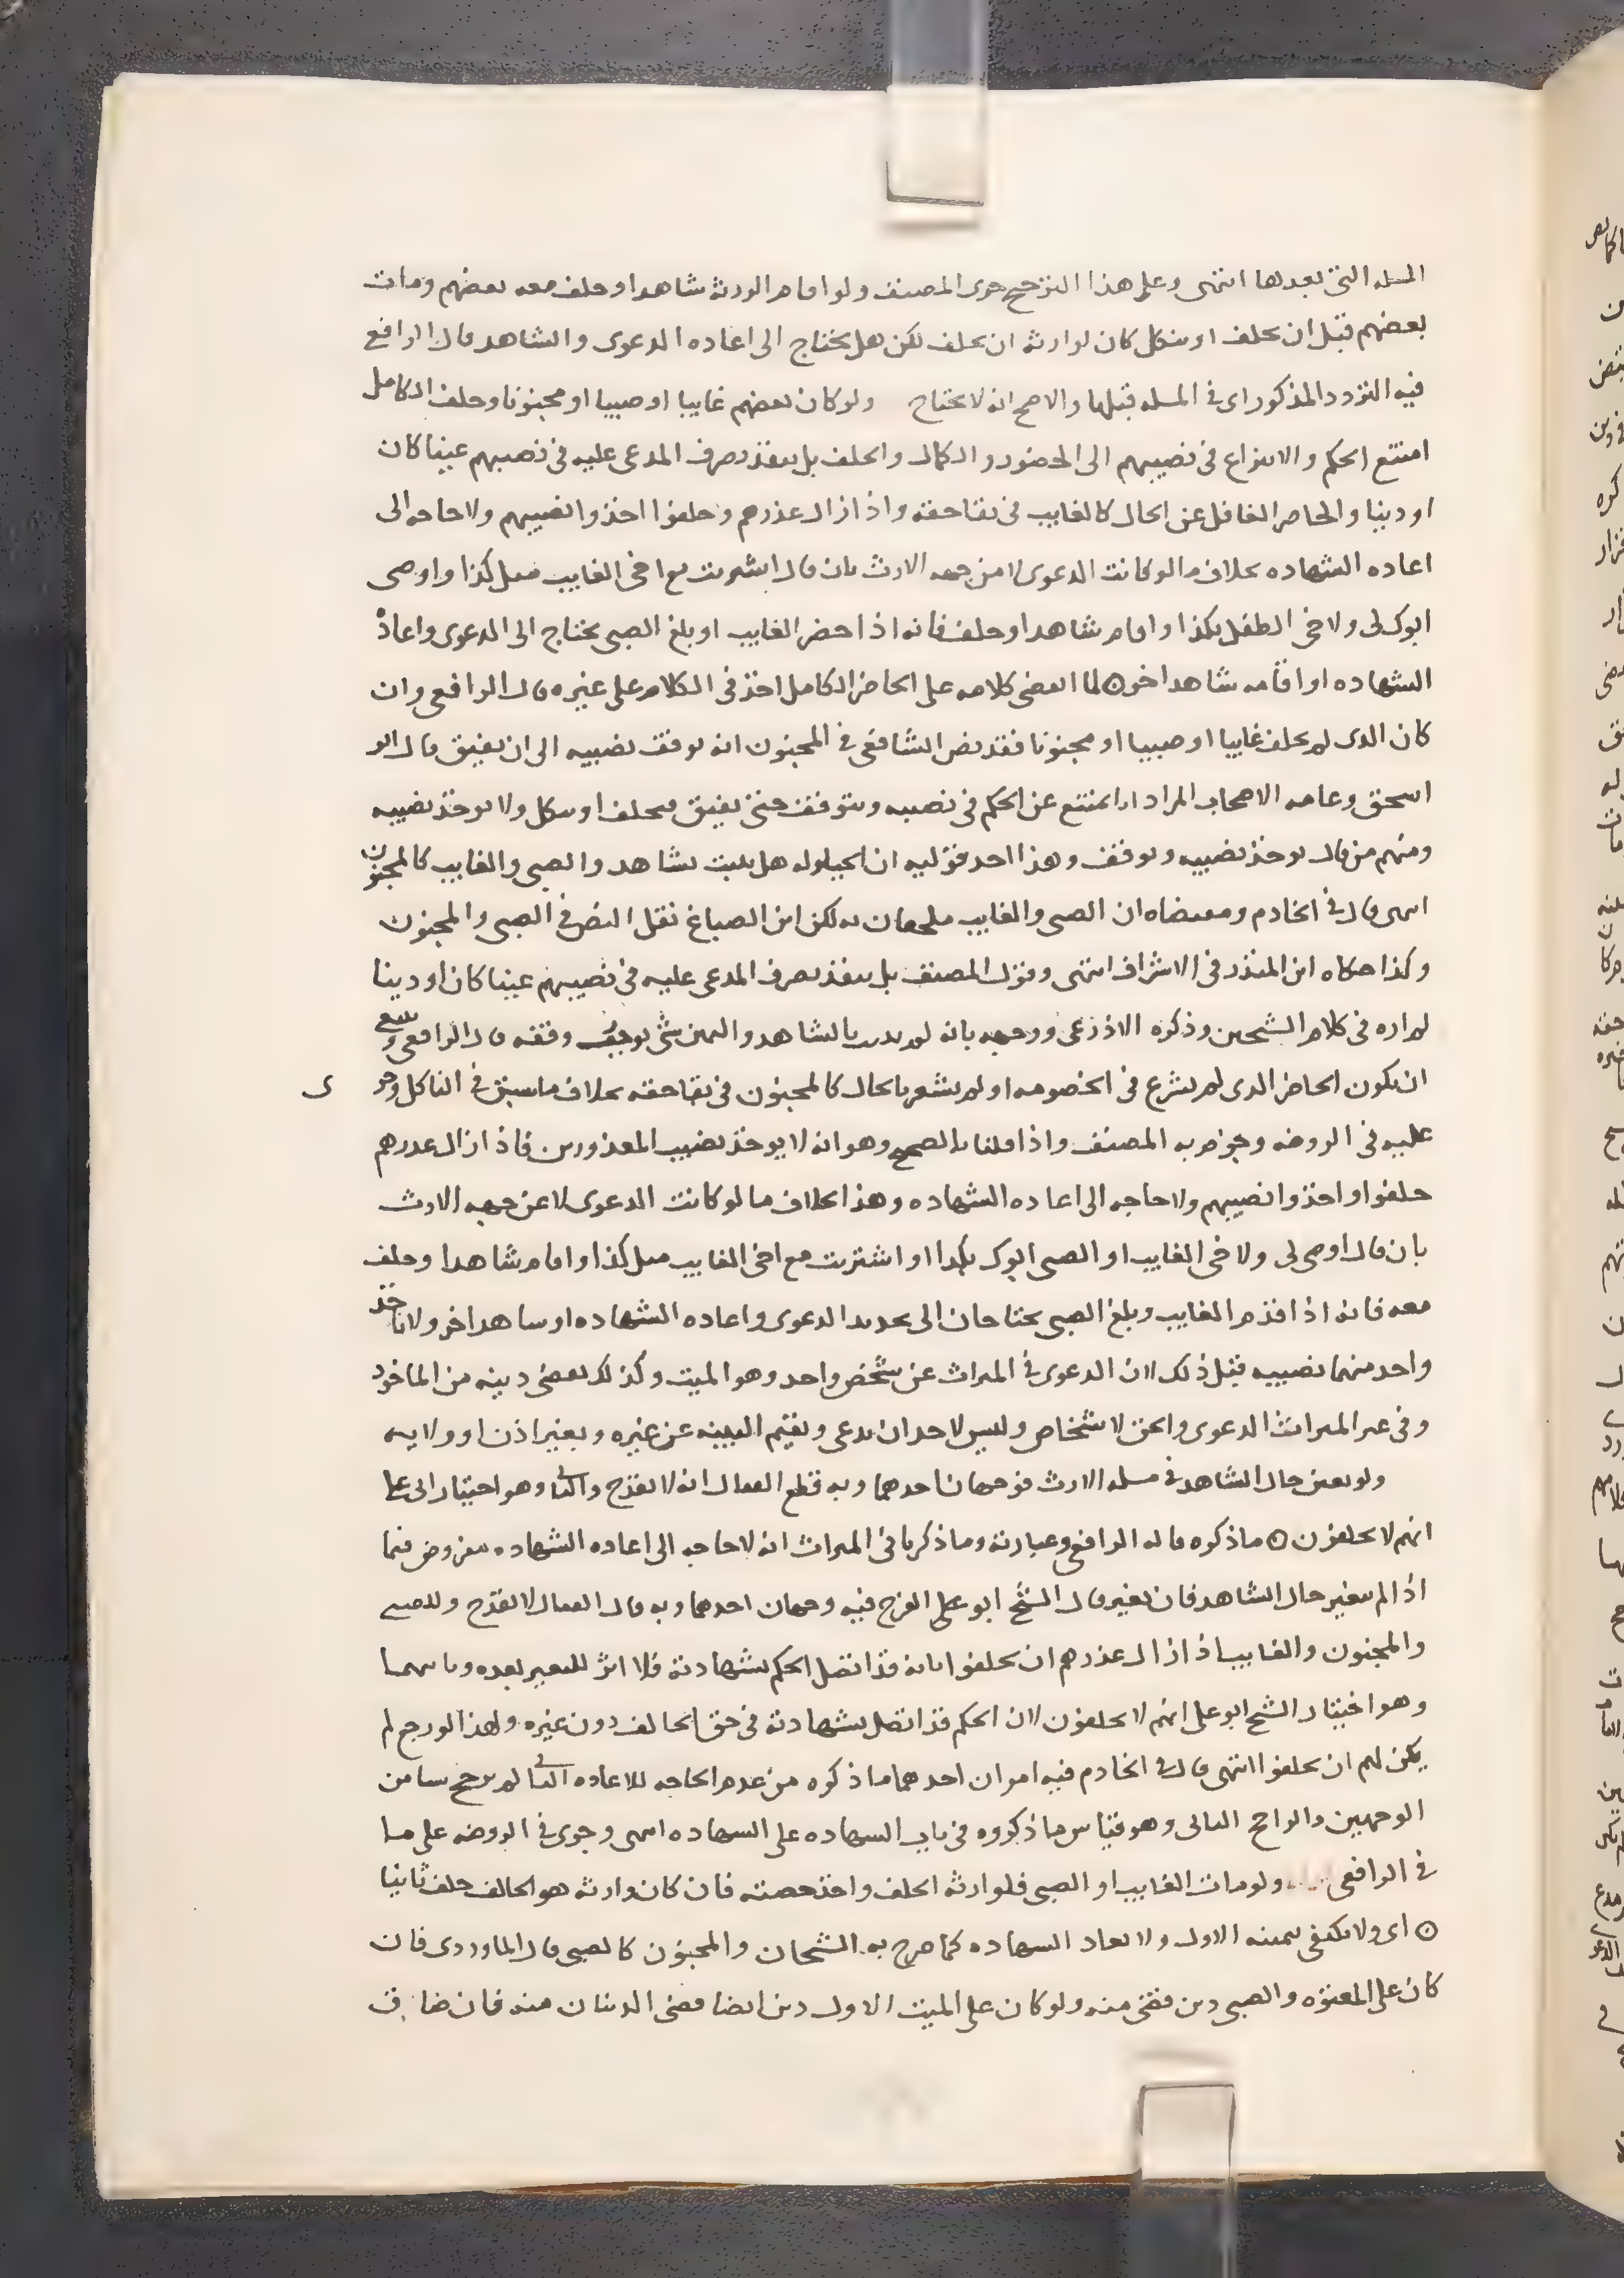 المسله التي بعدها انتهى وعلى هذا الترجيح جرى المصنف ولو اقام الورثة شاهدا وحلف معه بعضهم ومات
بعضهم قبل ان يحلف او ينكل كان لوارثه ان يحلف لكن هل يحتاج الى اعاده الدعوى والشاهد قال الرافعي
فيه التردد المذكور اى في المسله قبلها والاصح انه لا يحتاج ولو كان بعضهم غايبا او صبيا او مجنونا وحلف الكامل
امتنع الحكم والانتزاع في نصيبهم الى الحضور والكمال والحلف بل ينفذ تصرف المدعى عليه في نصيبهم عينا كان
او دينا والحاضر الغافل عن الحال كالغايب في بقا حقه واذا زال عذرهم وحلفوا اخذوا نصيبهم ولا حاجه الى
اعاده الشهاده بخلاف ما لو كانت الدعوى لا من جهه الارث بان قال اشتريت مع اخي الغايب منك كذا واوصى
ابوك لى ولاخى الطفل بكذا واقام شاهدا وحلف فانه اذا حضر الغايب او بلغ الصبى يحتاج الى الدعوى واعادة
الشهاده او اقامه شاهد اخر ٥ لما انقضى كلامه على الحاضر الكامل اخذ في الكلام على غيره قال الرافعى وان
كان الذى لم يحلف غايبا او صبيا او مجنونا فقد نص الشافعى في المجنون انه يوقف نصيبه الى ان يفيق قال ابو
اسحق وعامه الاصحاب المراد انا نمتنع عن الحكم في نصيبه ويتوقف حتى يفيق فيحلف او ينكل ولا يوخذ نصيبه
ومنهم من قال يوخذ نصيبه ويوقف وهذا احد قوليه ان الحيلوله هل تثبت بشاهد والصبى والغايب كالمجنون
انتهى قال في الخادم ومقتضاه ان الصبى والغايب ملحقان به لكن ابن الصباغ نقل النص في الصبى والمجنون
وكذا حكاه ابن المنذر في الاشراف انتهى وقول المصنف بل ينفذ تصرف المدعى عليه في نصيبهم عينا كان او دينا
لم اره في كلام الشيخين وذكره الاذرعى ووجهه بانه لم يثبت بالشاهد واليمين شى يوجب وقفه قال الرافعى وينبغى
ان يكون الحاضر الذى لم يشرع في الخصومه او لم يشعر بالحال كالمجنون في بقا حقه بخلاف ما سبق في الناكل وجر ى
عليه في الروضه وجزم به المصنف واذا قلنا بالصحيح وهو انه لا يوخذ نصيب المعذورين فاذا زال عذرهم
حلفوا واخذوا نصيبهم ولا حاجه الى اعاده الشهاده وهذا بخلاف ما لو كانت الدعوى لا عن جهه الارث
بان قال اوصى لى ولاخى الغايب او الصبى ابوك بكذا او اشتريت مع اخى الغايب منك كذا واقام شاهدا وحلف
معه فانه اذا قدم الغايب وبلغ الصبى يحتاجان الى تجديد الدعوى واعاده الشهاده او شاهد اخر ولا ياخذ
واحد منهما نصيبه قبل ذلك لان الدعوى في الميراث عن شخص واحد وهو الميت وكذلك يقضى دينه من الماخوذ
وفي غير الميراث الدعوى والحق لاشخاص وليس لاحد ان يدعى ويقيم البينه عن غيره وبغير اذن او ولايه
ولو تغير حال الشاهد في مسله الارث فوجهان احدهما وبه قطع القفال انه لا يقدح والثانى وهو اختيار ابى على
انهم لا يحلفون ٥ ما ذكره قاله الرافعى وعبارته وما ذكرنا في الميراث انه لا حاجه الى اعاده الشهاده مفروض فيما
اذا لم يتغير حال الشاهد فان تغير قال الشيخ ابو على الفرج فيه وجهان احدهما وبه قال القفال لا يقدح وللصبى
والمجنون والغايب اذا زال عذرهم ان يحلفوا لانه قد اتصل الحكم بشهادته فلا اثر للتغير بعده وثانيهما
وهو اختيار الشيخ ابو على انهم لا يحلفون لان الحكم قد اتصل بشهادته في حق الحالف دون غيره ولهذا لو رجع لم
يكن لهم ان يحلفوا انتهى قال في الخادم فيه امران احدهما ما ذكره من عدم الحاجه للاعاده الثانى لم يرجح شيا من
الوجهين والراجح الثانى وهو قياس ما ذكروه في باب الشهاده على الشهاده انتهى وجرى في الروضه على ما
في الرافعى ولو مات الغايب او الصبى فلوارثه الحلف واخذ حصته فان كان وارثه هو الحالف حلف ثانيا
٥ اى ولا يكفى يمينه الاول ولا تعاد الشهاده كما صرح به الشيخان والمجنون كالصبى قال الماوردى فان
كان على المعتوه والصبى دين قضى منه ولو كان على الميت الاول دين ايضا قضى الدينان منه فان ضاق